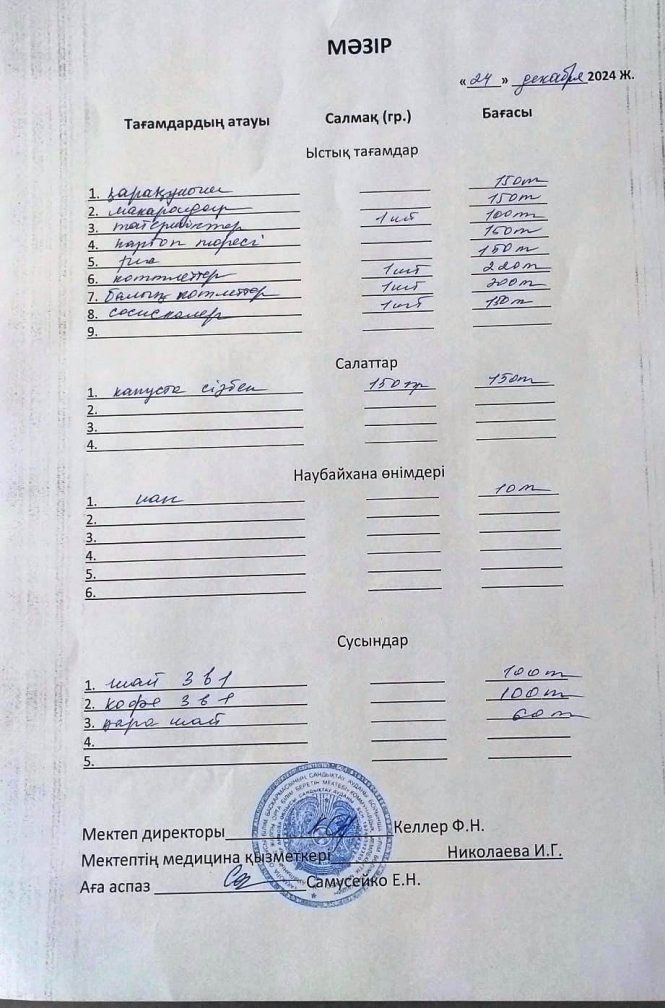 МӘЗІР
«24» декабря 2024 Ж.
Тағамдардың атауы Салмақ (гр.) Бағасы
Ыстық тағамдар
1. 150т
2. макарондар 150т
3. 1 шт 100т
4. картоп пюресі 160т
5. 150т
6. котлеттер 1 шт 220т
7. балық котлеттер 1 шт 200т
8. сосискалер 1 шт 150т
9.
Салаттар
1. капуста сізбен 150 гр 150т
2.
3.
4.
Наубайхана өнімдері
1. нан 10т
2.
3.
4.
5.
6.
Сусындар
1. шай 3 в 1 100т
2. кофе 3 в 1 100т
3. қара шай 60т
4.
5.
Мектеп директоры Келлер Ф.Н.
Мектептің медицина қызметкері Николаева И.Г.
Аға аспаз Самусейко Е.Н.